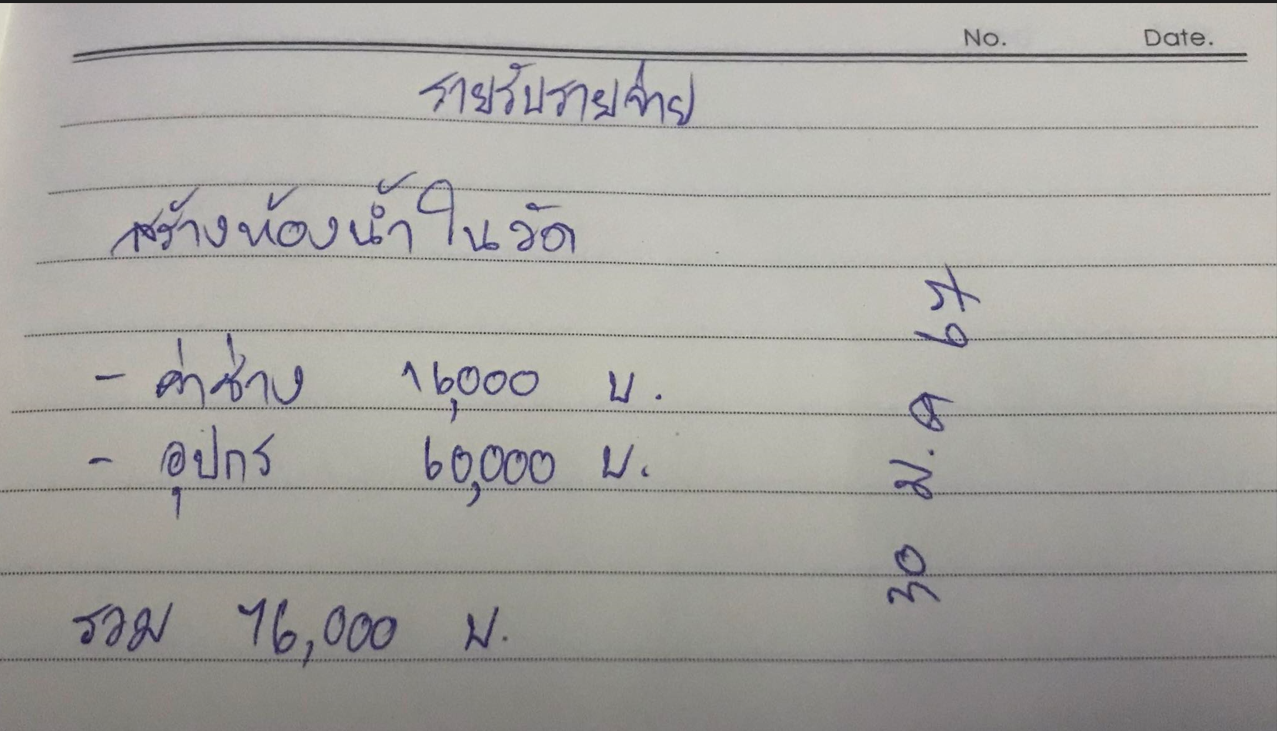 No. Date.
รายรับรายจ่าย
สร้างห้องน้ำในวัด
- ค่าช่าง 16,000 บ.
- อุปกร 60,000 บ.
รวม 76,000 บ.
30 ม.ค 67